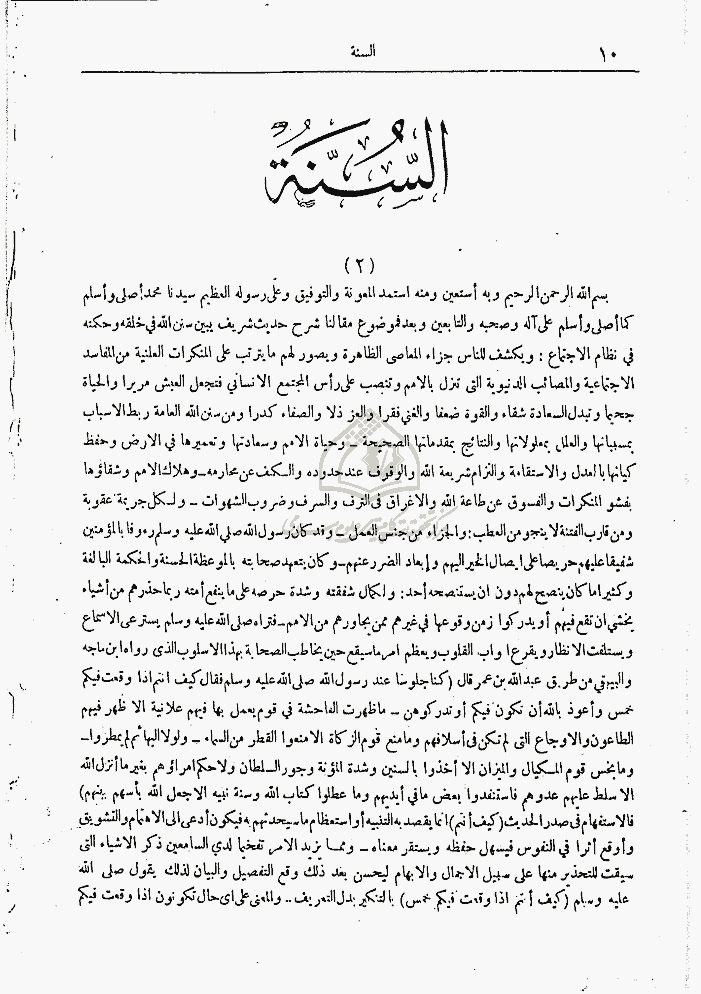 ١٠
السنة
السُّنَّةُ
(٢)
بسم الله الرحمن الرحيم وبه أستعين ومنه استمد المعونة والتوفيق وعلى رسوله العظيم سيدنا محمد أصلى وأسلم
كما أصلى وأسلم على آله وصحبه والتابعين وبعد فموضوع مقالنا شرح حديث شريف يبين سنن الله فى خلقه وحكمته
في نظام الاجتماع : ويكشف للناس جزاء المعاصى الظاهرة ويصور لهم ما يترتب على المنكرات العلنية من المفاسد
الاجتماعية والمصائب الدنيوية التى تنزل بالامم وتنصب على رأس المجتمع الانسانى فتجعل العيش مريرا والحياة
جحيما وتبدل السعادة شقاء والقوة ضعفا والغنى فقرا والعز ذلا والصفاء كدرا ومن سنن الله العامة ربط الاسباب
بمسبباتها والعلل بمعلولاتها والنتائج بمقدماتها الصحيحة – وحياة الامم وسعادتها وتعميرها في الارض وحفظ
كيانها بالعدل والاستقامة والتزام شريعة الله والوقوف عند حدوده والكف عن محارمه – وهلاك الامم وشقاؤها
بفشو المنكرات والفسوق عن طاعة الله والاغراق فى الترف والسرف وضروب الشهوات – ولكل جريمة عقوبة
ومن قارب الفتنة لا ينجو من العطب : والجزاء من جنس العمل – وقد كان رسول الله صلى الله عليه وسلم رءوفا بالمؤمنين
شفيقا عليهم حريصا على ايصال الخير اليهم وإبعاد الضرر عنهم – وكان يتعهد صحابته بالموعظة الحسنة والحكمة البالغة
وكثيرا ما كان ينصح لهم دون ان يستنصحه أحد : ولكمال شفقته وشدة حرصه على ما ينفع أمته ربما حذرهم من أشياء
يخشى ان تقع فيهم أو يدركوا زمن وقوعها في غيرهم ممن يجاورهم من الامم – فتراه صلى الله عليه وسلم يسترعى الاسماع
ويستلفت الانظار ويقرع ابواب القلوب ويعظم امر ما سيقع حين يخاطب الصحابة بهذا الاسلوب الذى رواه ابن ماجه
والبيهقى من طريق عبد الله بن عمر قال (كنا جلوسا عند رسول الله صلى الله عليه وسلم فقال كيف انتم اذا وقعت فيكم
خمس وأعوذ بالله أن تكون فيكم أو تدركوهن – ما ظهرت الفاحشة في قوم يعمل بها فيهم علانية الا ظهر فيهم
الطاعون والاوجاع التى لم تكن فى أسلافهم وما منع قوم الزكاة الا منعوا القطر من السماء – ولولا البهائم لم يمطروا –
وما بخس قوم المكيال والميزان الا أخذوا بالسنين وشدة المؤنة وجور السلطان ولا حكم امراؤهم بغير ما أنزل الله
الا سلط عليهم عدوهم فاستنفدوا بعض ما في أيديهم وما عطلوا كتاب الله وسنة نبيه الا جعل الله بأسهم بينهم)
فالاستفهام فى صدر الحديث (كيف أنتم) انما يقصد به التنبيه أو استعظام ما سيحدثهم به فيكون أدعى الى الاهتمام والتشويق
وأوقع أثرا في النفوس فيسهل حفظه ويستقر معناه – ومما يزيد الامر تفخيما لدي السامعين ذكر الاشياء التى
سيقت للتحذير منها على سبيل الاجمال والابهام ليحسن بعد ذلك وقع التفصيل والبيان لذلك يقول صلى الله
عليه وسلم (كيف أنتم اذا وقعت فيكم خمس) بالتنكير بدل التعريف .. والمعنى على اى حال تكونون اذا وقعت فيكم